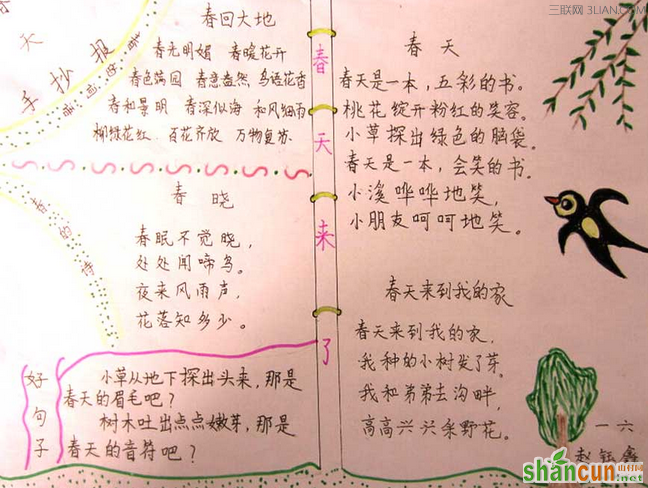 三联网 3LIAN.COM
天
手抄报
春回大地
春光明媚 春暖花开
春色满园 春意盎然 鸟语花香
春和景明 春深似海 和风细雨
柳绿花红 百花齐放 万物复苏
春的诗
春晓
春眠不觉晓,
处处闻啼鸟。
夜来风雨声,
花落知多少。
好句子
小草从地下探出头来,那是
春天的眉毛吧?
树木吐出点点嫩芽,那是
春天的音符吧?
春天来了
春天
春天是一本,五彩的书。
桃花绽开粉红的笑容。
小草探出绿色的脑袋。
春天是一本,会笑的书。
小溪哗哗地笑,
小朋友呵呵地笑。
春天来到我的家
春天来到我的家,
我种的小树发了芽。
我和弟弟去沟畔,
高高兴兴采野花。
一六
shancun
.net